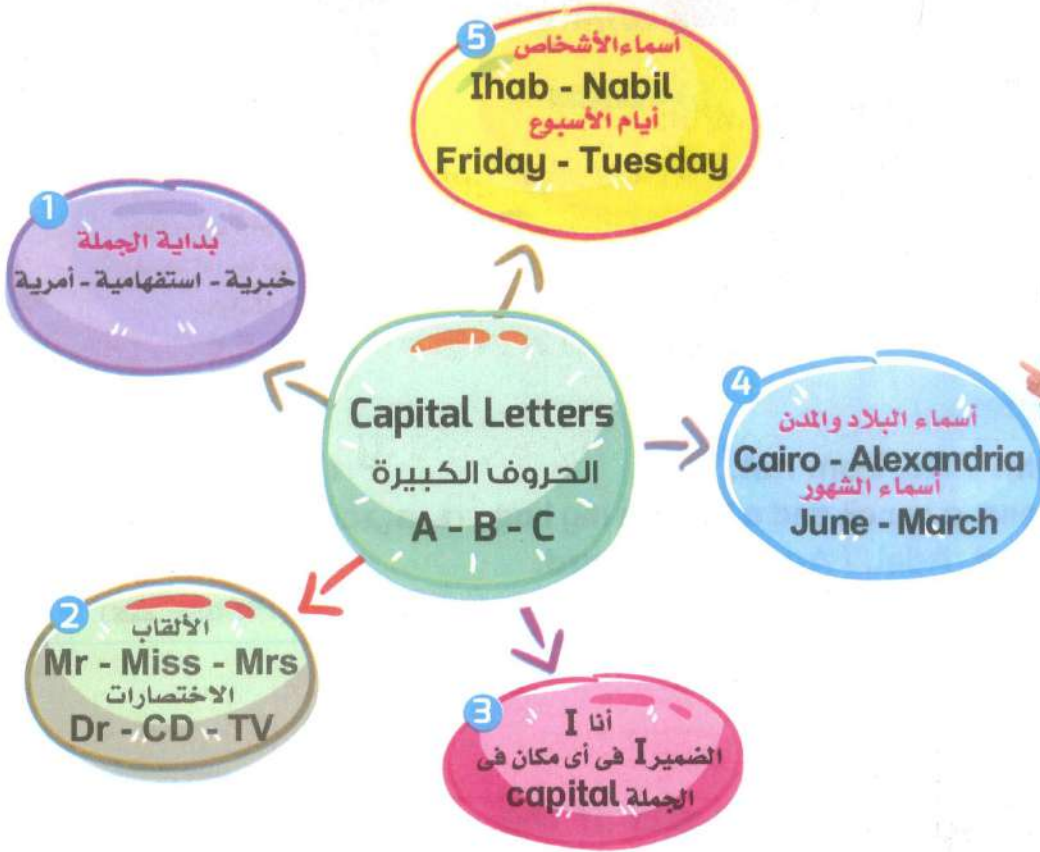 Capital Letters
الحروف الكبيرة
A - B - C
1
بداية الجملة
خبرية - استفهامية - أمرية
2
الألقاب
Mr - Miss - Mrs
الاختصارات
Dr - CD - TV
3
أنا I
الضمير I فى أى مكان فى
الجملة capital
4
أسماء البلاد والمدن
Cairo - Alexandria
أسماء الشهور
June - March
5
أسماء الأشخاص
Ihab - Nabil
أيام الأسبوع
Friday - Tuesday